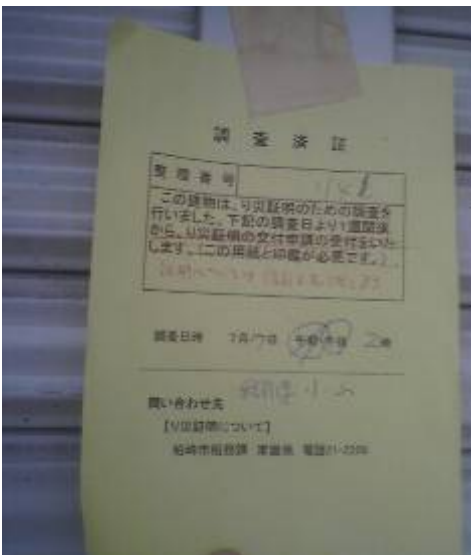 調査済証
整理番号
この建物は、り災証明のための調査を
行いました。下記の調査日より1週間後
から、り災証明の交付申請の受付をいた
します。(この用紙と印鑑が必要です。)
調査日時 7月17日 午前・午後 2時
問い合わせ先
【り災証明について】
柏崎市税務課 家屋係 電話21-2200